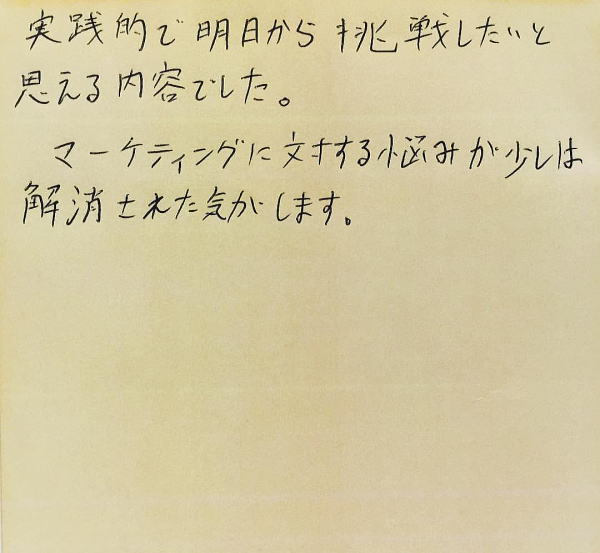 実践的で明日から挑戦したいと
思える内容でした。
マーケティングに対する悩みが少しは
解消された気がします。